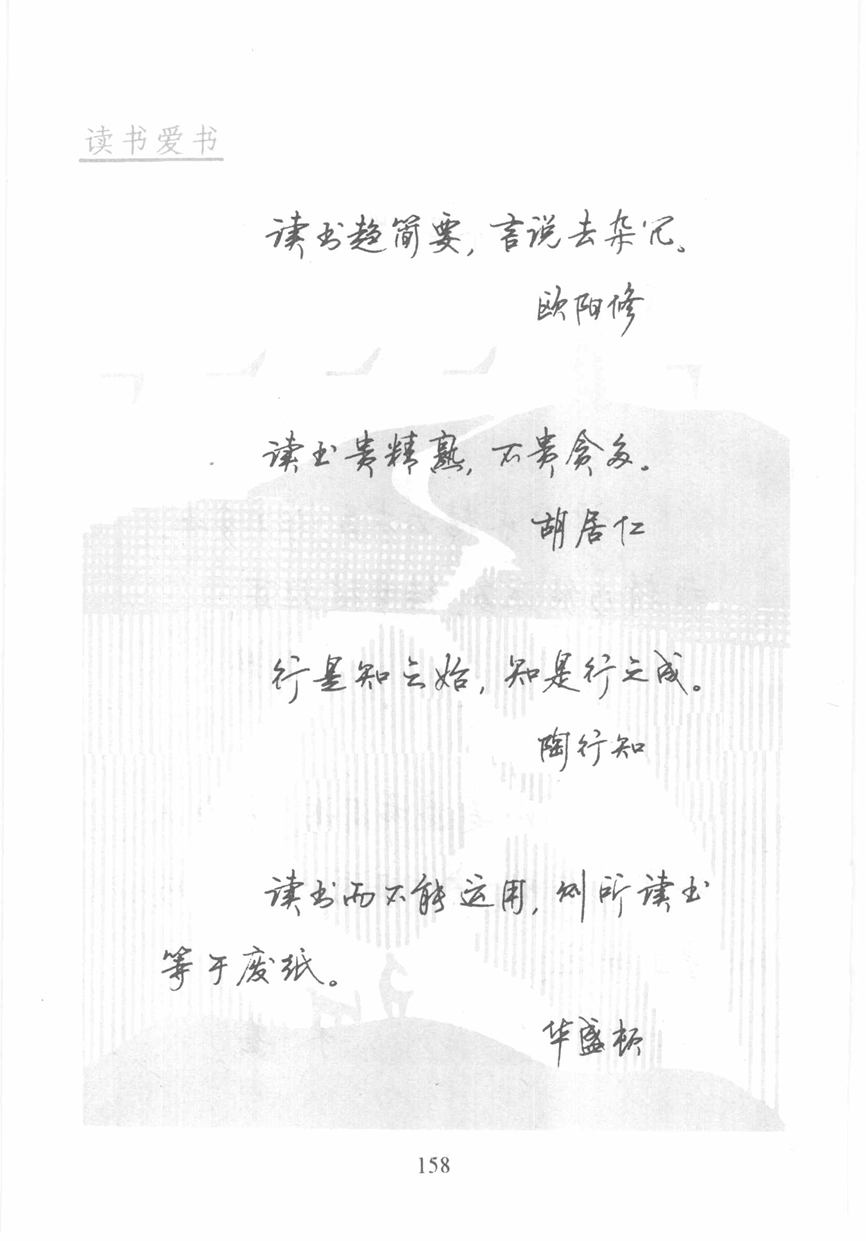 读书爱书
读书趋简要，言说去杂冗。
欧阳修
读书贵精熟，不贵贪多。
胡居仁
行是知之始，知是行之成。
陶行知
读书而不能运用，则所读书
等于废纸。
华盛顿
158